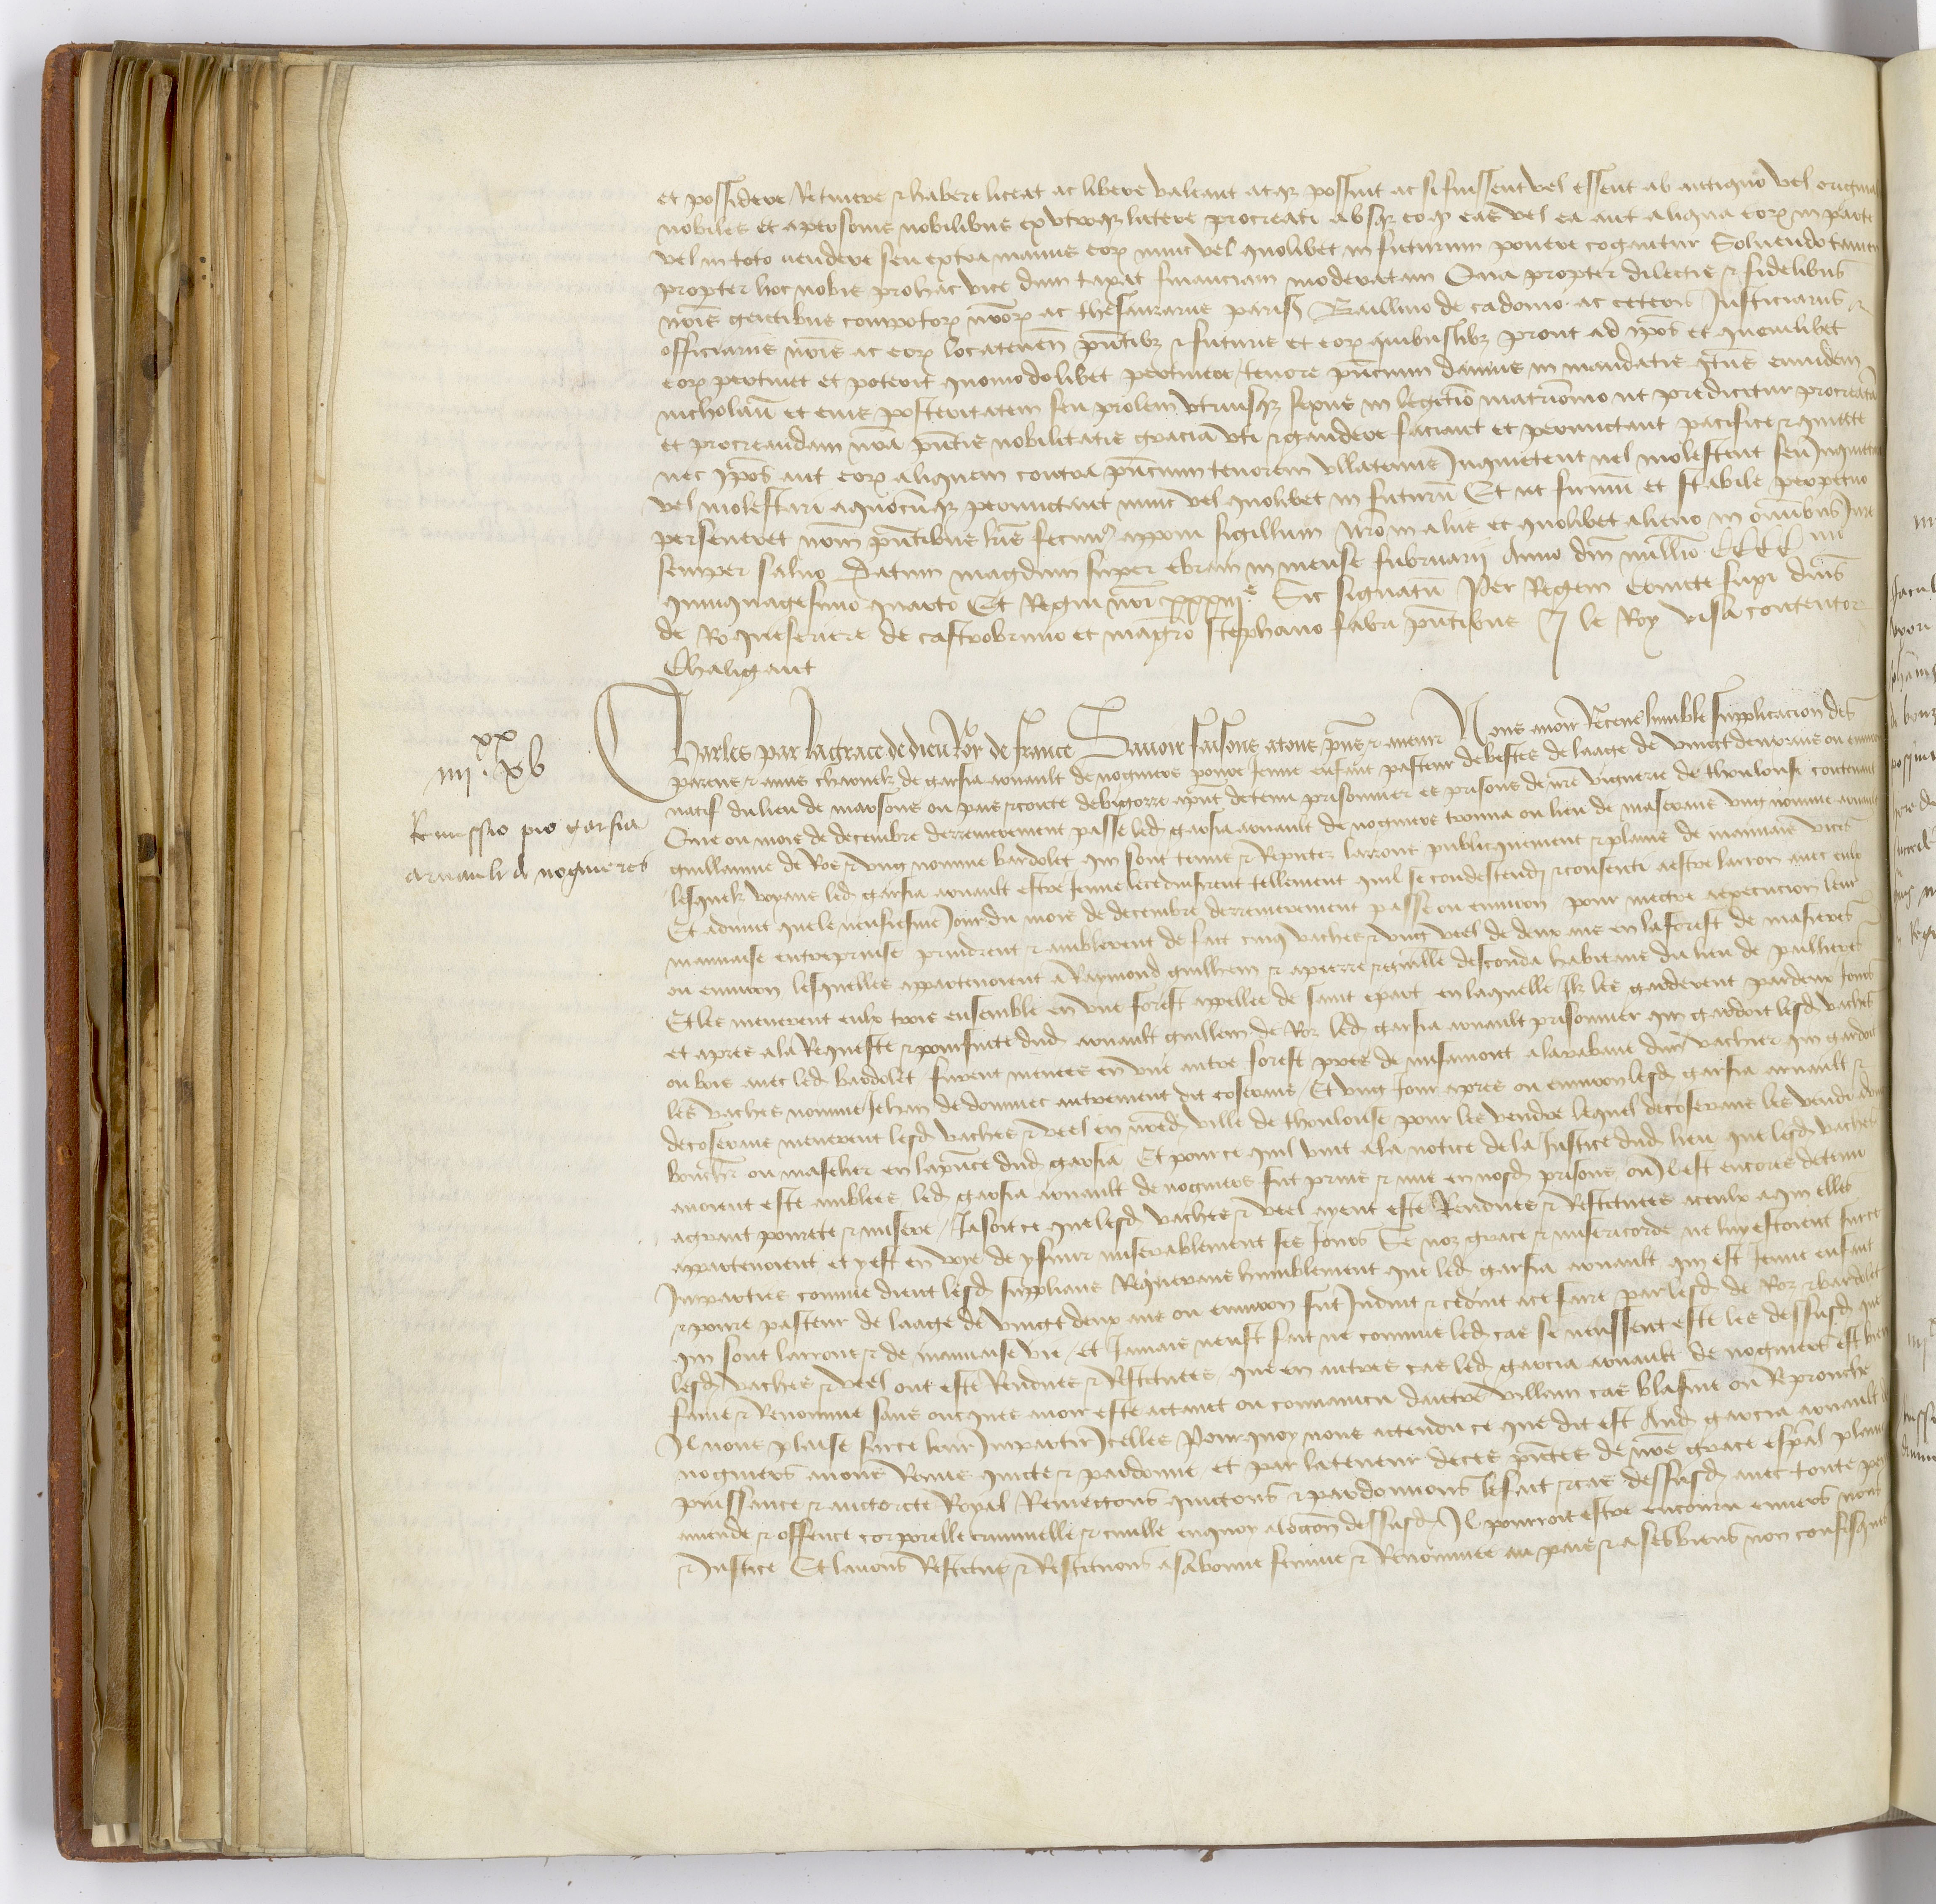 et possidere Retinere & habere liceat ac libere valeant atque possint ac si fuissent vel essent ab antiquo vel origina
nobiles et a personis nobilibus ex utroque latere procreati absque eo quod eas vel ea aut aliqua eorum in parte
vel in toto vendere seu extra manus eorum nunc vel quolibet in futurum ponere cogantur Solvendo tamen
propter hoc nobis pro hac vice dum taxat financiam moderatam Qua propter dilectis & fidelibus
nostris gentibus compotorum nostrorum ac thesaurarus parisius Baillivo de cadomo ac ceteris Justiciarus &
officiarus nostris ac eorum locatenentibus presentibus & futuris et eorum quibuslibet prout ad ipsos et quemlibet
eorum pertinet et poterit quomodolibet pertinere / tenore presencium damus in mandatis quatenus eumdem
nicholaum et eius posteritatem seu prolem utriusque sexus in legitimo matrimonio ut predicitur procreatam
et procreandam nostra presentis nobilitatis gracia uti & gaudere faciant et permictant pacifice & quiete
nec ipsos aut eorum aliquem contra presencium tenorem ullatenus Inquietent vel molestent seu Inquietari
vel molestari a quocumque permictant nunc vel quolibet in futurum Et ut firmum et stabile perpetuo
perseveret nostrum presentibus litteris fecimus apponi sigillum Nostro in aliis et quolibet alieno in omnibus Jure
semper salvo Datum magdunum super ebram in mense februarii Anno domini millesimo CCCC mo
quinquagesimo quarto Et Regni nostri xxxiii e Sic signatum Per Regem Comite supi dominis
de Roqueseriere de castrobrunio et magistro stephano fabri presentibus J le Roy visa contentor
Chaligaut
iiii xx xv
Remissio pro garsia
arnauli de nogueres
Charles par la grace de dieu Roy de france Savoir faisons a tous presens & avenir Nous avoir Receue humble supplicacion des
parens & amis charnelz de garsia arnault de nogueres povre Jenne enfant pasteur de bestes de laage de vingt deux ans ou environ
natif du lieu de marsons ou pais & conte de bigorre apresent detenu prisonnier es prisons de nostre viguerie de thoulouse contenant
Que ou mois de decembre derrenierement passe led garsia arnault de nogueres trouva ou lieu de maserans ung nomme arnault
guillaume de Ros & ung nomme bardolet qui sont tenus & Reputez larrons publicquement & plains de mauvais vices
lesquelz voyans led garsia arnault estre Jenne le seduisirent tellement quil se condescendi & consenti a estre larron avec eulx
Et advint que le neufiesme Jour du mois de decembre derrenierement passe ou environ pour mectre a execucion leur
mauvaise entreprinse prindrent & amblerent de fait cinq vaches & ung veel de deux ans en la forest de masieres
ou environ lesquelles appartenoient a Raymond guilhem & a pierre & guille desconda habitans du lieu de pailheres
Et les menerent eulx trois ensemble en une forest appellee de saint epart en laquelle Ilz les garderent par deux Jours
et apres a la Requeste & poursuite dud arnault guillem de Ros led garsia arnault prisonnier qui gardoit lesd vaches
ou bois avec led bardolet furent menees en une autre forest pres de miramont a la cabane dun vachier qui gardoit
les vaches nomme Jehan de dommec autrement dit coserans / Et ung Jour apres ou environ lesd garsia arnault &
de coserans menerent lesd vaches & veel en nostred ville de thoulouse pour les vendre lequel de coserans les vendi a un
bouchier ou maselier en la presence dud garsia Et pource quil vint a la notice de la Justice dud lieu que lesd vaches
avoient este amblees led garsia arnault de nogueres fut prins & mis en nosd prisons ou Il est encores detenu
a grant povrete & misere / Jasoit ce que lesd vaches & veel ayent este Rendues & Restituees a ceulx a qui elles
appartenoient et y est en voye de y finir miserablement ses Jours Se noz grace & misericorde ne luy estoient sur ce
Imparties comme dient lesd supplians Requerans humblement que led garsia arnault qui est Jenne enfant
& povre pasteur de laage de vingt deux ans ou environ fut Induit & seduit a ce faire par lesd de Ros & bardolet
qui sont larrons & de mauvaise vie / et Jamais neust fait ne commis led cas se neussent este les dessusd que
lesd vaches & veel ont este Rendues & Restituees que en autres cas led garcia arnault de nogueres est bien
fame & Renomme sans oncques avoir este actaint ou convaincu dautre villain cas blasme ou Reprouche
Il nous plaise sur ce leur Impartir Icelles Pourquoy nous actendu ce que dit est Aud garcia arnault de
nogueres avons Remis quicte & pardonne et par la teneur de ces presentes de nostre grace especial plaine
puissance & auctorite Royal Remectons quictons & pardonnons le fait & cas dessusd avec toute peine
amende & offence corporelle criminelle & civille en quoy a loccasion dessusd Il pourroit estre encouru envers nous
& Justice Et lavons Restitue & Restituons a sa bonne femme & Renommee au pais & a ses biens non confisques